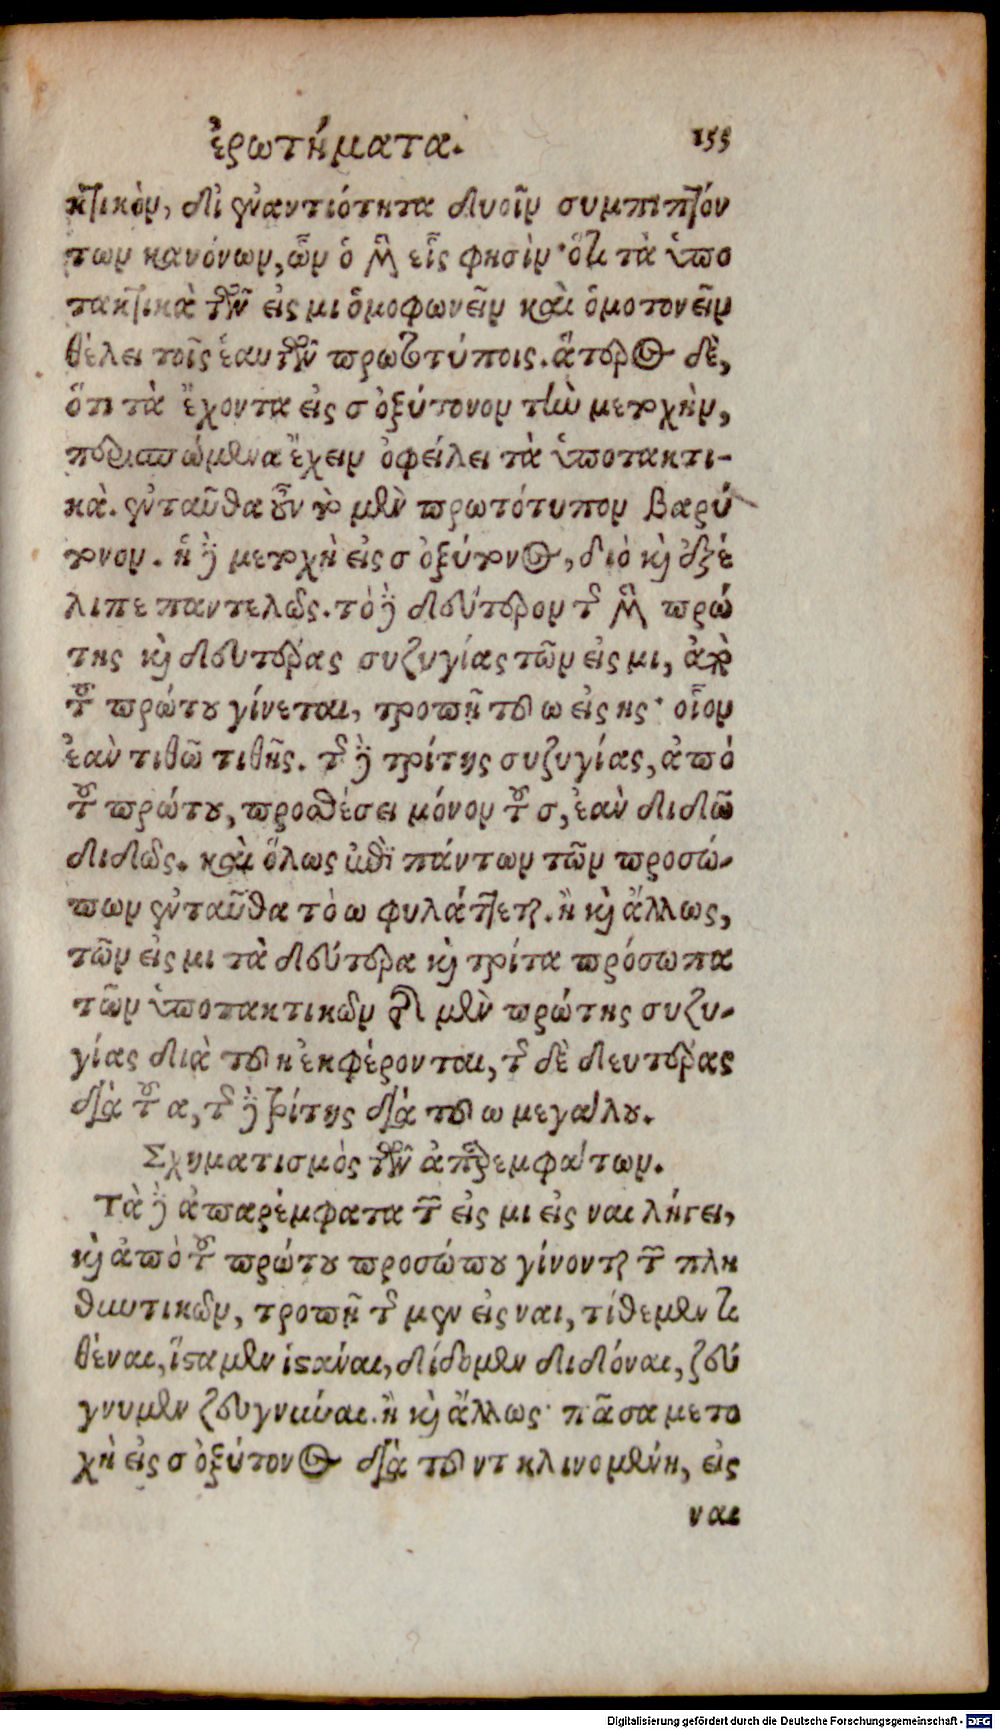 ἐρωτήματα. 155
κτικὸν, δι ἐναντιότητα δυοῖν συμπιπτόν
των κανόνων, ὧν ὁ μὲν εἷς φησὶν· ὅτι τὰ ὑπο
τακτικὰ τῶν εἰς μι ὁμοφωνεῖν καὶ ὁμοτονεῖν
θέλει τοῖς ἑαυτῶν πρωτοτύποις. ἅτερος δὲ,
ὅτι τὰ ἔχοντα εἰς σ ὀξύτονον τὴν μετοχὴν,
περισπώμενα ἔχειν ὀφείλει τὰ ὑποτακτι-
κὰ. ἐνταῦθα οὖν τὸ μὲν πρωτότυπον βαρύ
τονον. ἡ δὲ μετοχὴ εἰς σ ὀξύτονος, διὸ καὶ ἐξέ
λιπε παντελῶς. τὸ δὲ δεύτερον τῆς μὲν πρώ
της καὶ δευτέρας συζυγίας τῶν εἰς μι, ἀπὸ
τοῦ πρώτου γίνεται, τροπῇ τοῦ ω εἰς ης· οἷον
ἐὰν τιθῶ τιθῇς. τῆς δὲ τρίτης συζυγίας, ἀπὸ
τοῦ πρώτου, προσθέσει μόνον τοῦ σ, ἐὰν διδῶ
διδῶς. καὶ ὅλως ἐπὶ πάντων τῶν προσώ-
πων ἐνταῦθα τὸ ω φυλάττεται. ἢ καὶ ἄλλως,
τῶν εἰς μι τὰ δεύτερα καὶ τρίτα πρόσωπα
τῶν ὑποτακτικῶν τῆς μὲν πρώτης συζυ-
γίας διὰ τοῦ η ἐκφέρονται, τῆς δὲ δευτέρας
διὰ τοῦ α, τῆς δὲ τρίτης διὰ τοῦ ω μεγάλου.
Σχηματισμὸς τῶν ἀπαρεμφάτων.
Τὰ δὲ ἀπαρέμφατα τῶν εἰς μι εἰς ναι λήγει,
καὶ ἀπὸ τοῦ πρώτου προσώπου γίνονται τῶν πλη
θυντικῶν, τροπῇ τῆς μεν εἰς ναι, τίθεμεν τι
θέναι, ἵσταμεν ἱστάναι, δίδομεν διδόναι, ζεύ
γνυμεν ζευγνύναι. ἢ καὶ ἄλλως· πᾶσα μετο
χὴ εἰς σ ὀξύτονος διὰ τοῦ ντ κλινομένη, εἰς
ναι
Digitalisierung gefördert durch die Deutsche Forschungsgemeinschaft - DFG